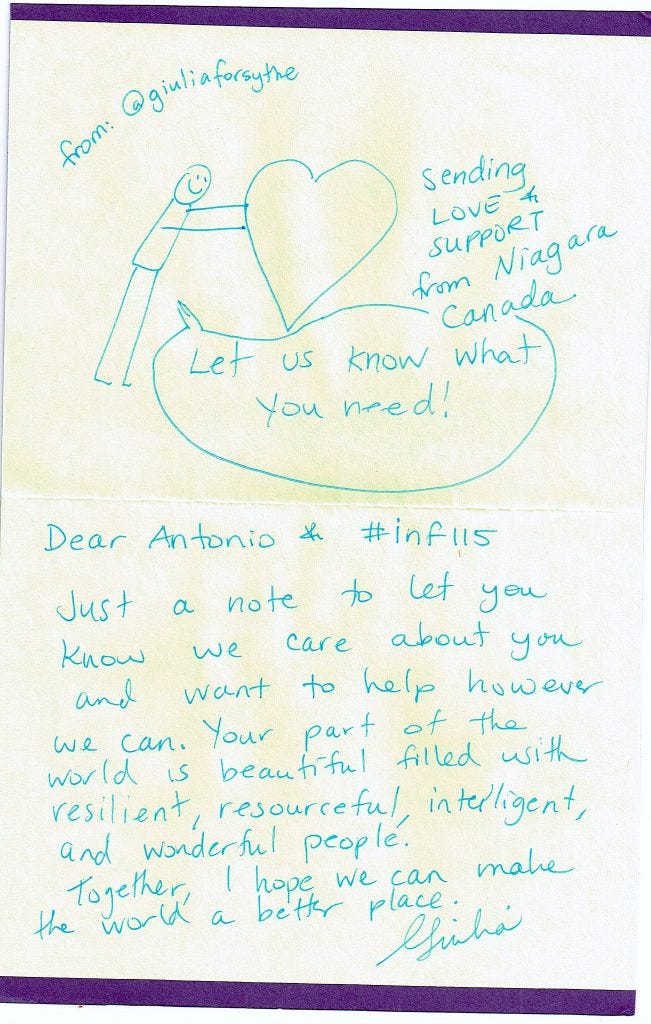 from: @giuliaforsythe
Sending
LOVE &
SUPPORT
from Niagara
Canada.
Let us know what
you need!
Dear Antonio & #inf115
Just a note to let you
know we care about you
and want to help however
we can. Your part of the
world is beautiful filled with
resilient, resourceful, intelligent,
and wonderful people.
Together, I hope we can make
the world a better place.
Giulia